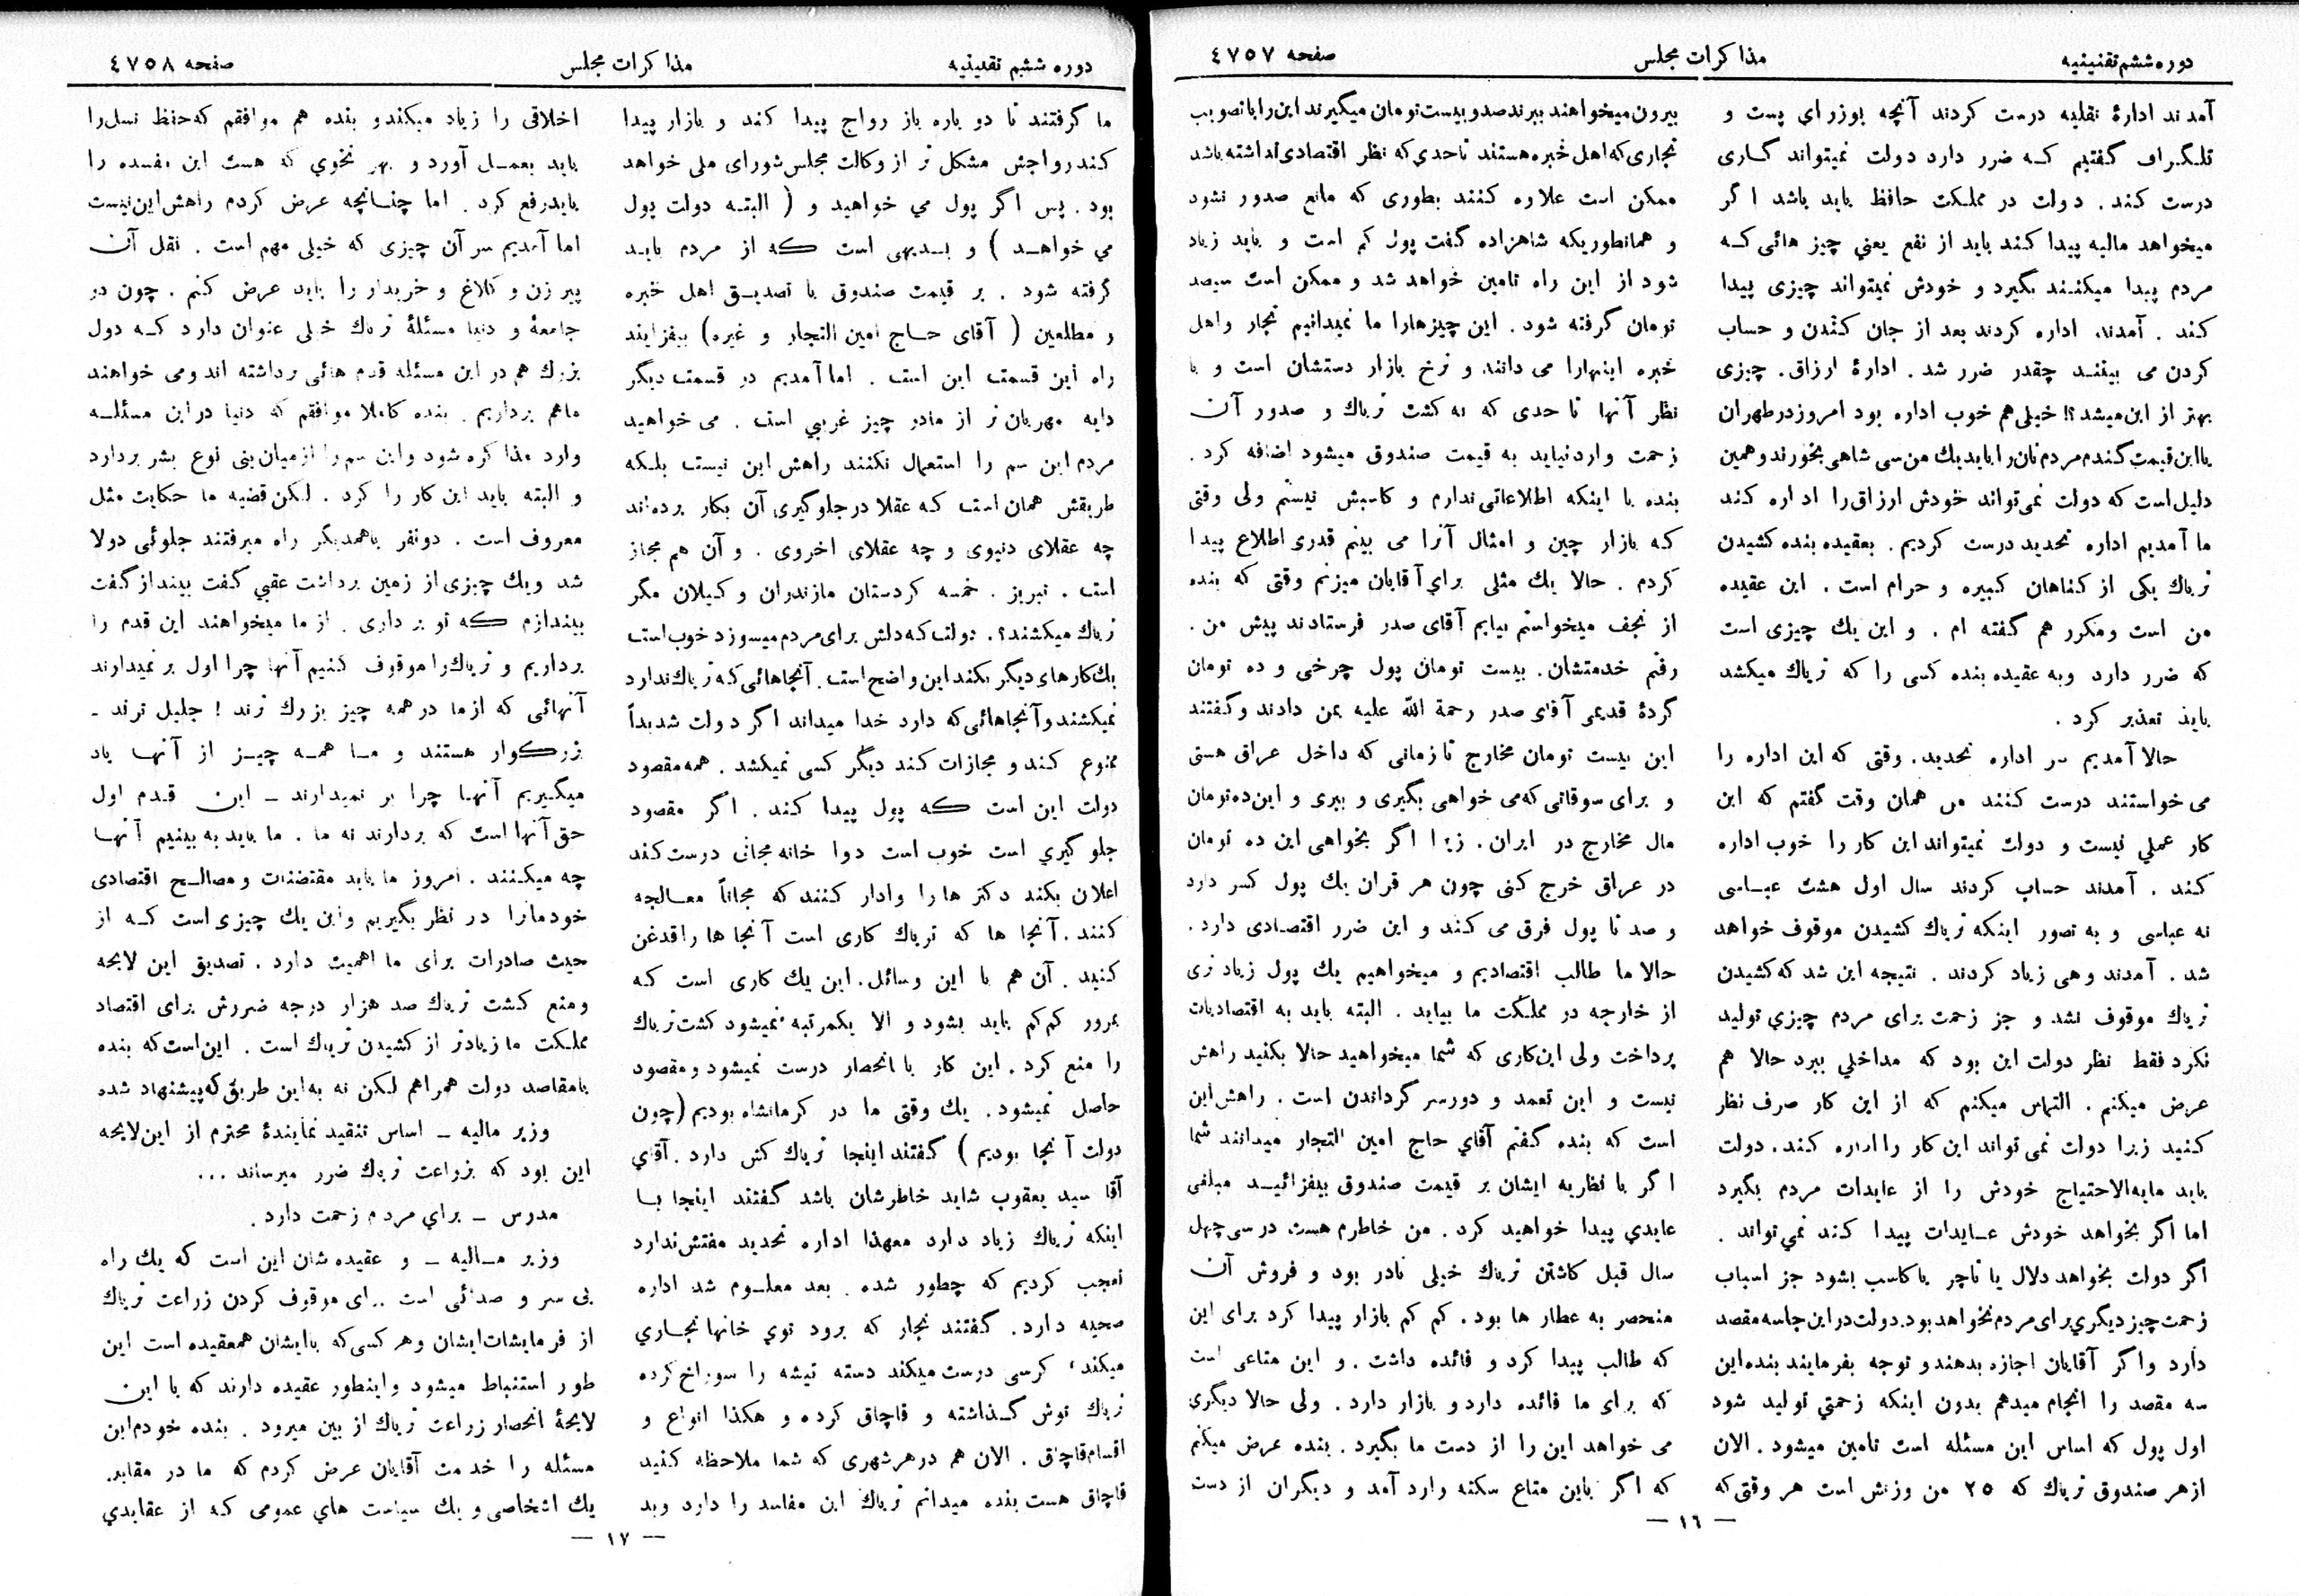 دوره ششم تقنینیه
مذاکرات مجلس
صفحه ٤٧٥٧
آمدند ادارهٔ نقلیه درست کردند آنچه بوزرای پست و
تلگراف گفتیم که ضرر دارد دولت نمیتواند گاری
درست کند . دولت در مملکت حافظ باید باشد اگر
میخواهد مالیه پیدا کند باید از نفع یعنی چیز هائی که
مردم پیدا میکنند بگیرد و خودش نمیتواند چیزی پیدا
کند . آمدند، اداره کردند بعد از جان کندن و حساب
کردن می بینند چقدر ضرر شد . ادارهٔ ارزاق . چیزی
بهتر از این میشد؟! خیلی هم خوب اداره بود امروز در طهران
با این قیمت گندم مردم نان را باید یك من سی شاهی بخورند و همین
دلیل است که دولت نمی تواند خودش ارزاق را اداره کند
ما آمدیم اداره تحدید درست کردیم . بعقیده بنده کشیدن
تریاك یکی از گناهان کبیره و حرام است . این عقیده
من است و مکرر هم گفته ام . و این یك چیزی است
که ضرر دارد و به عقیده بنده کسی را که تریاك میکشد
باید تعذیر کرد .
حالا آمدیم سر اداره تحدید . وقتی که این اداره را
می خواستند درست کنند من همان وقت گفتم که این
کار عملی نیست و دولت نمیتواند این کار را خوب اداره
کند . آمدند حساب کردند سال اول هشت عباسی
نه عباسی و به تصور اینکه تریاك کشیدن موقوف خواهد
شد . آمدند و هی زیاد کردند . نتیجه این شد که کشیدن
تریاك موقوف نشد و جز زحمت برای مردم چیزی تولید
نکرد فقط نظر دولت این بود که مداخلی ببرد حالا هم
عرض میکنم . التماس میکنم که از این کار صرف نظر
کنید زیرا دولت نمی تواند این کار را اداره کند . دولت
باید مابه الاحتیاج خودش را از عایدات مردم بگیرد
اما اگر بخواهد خودش عایدات پیدا کند نمی تواند .
اگر دولت بخواهد دلال یا تاجر یا کاسب بشود جز اسباب
زحمت چیز دیگری برای مردم نخواهد بود . دولت در این جا سه مقصد
دارد و اگر آقایان اجازه بدهند و توجه بفرمایند بنده این
سه مقصد را انجام میدهم بدون اینکه زحمتی تولید شود
اول پول که اساس این مسئله است تامین میشود . الان
از هر صندوق تریاك که ٢٥ من وزنش است هر وقتی که
بیرون میخواهند ببرند صد و بیست تومان میگیرند این را با تصویب
تجاری که اهل خبره هستند تا حدی که نظر اقتصادی نداشته باشد
ممکن است علاوه کنند بطوری که مانع صدور نشود
و همانطوریکه شاهزاده گفت پول کم است و باید زیاد
شود از این راه تامین خواهد شد و ممکن است سیصد
تومان گرفته شود . این چیزهارا ما نمیدانیم تجار و اهل
خبره اینهارا می دانند و نرخ بازار دستشان است و با
نظر آنها تا حدی که به کشت تریاك و صدور آن
زحمت وارد نیاید به قیمت صندوق میشود اضافه کرد .
بنده با اینکه اطلاعاتی ندارم و کاسبش نیستم ولی وقتی
که بازار چین و امثال آنرا می بینم قدری اطلاع پیدا
کردم . حالا یك مثلی برای آقایان میزنم وقتی که بنده
از نجف میخواستم بیایم آقای صدر فرستادند پیش من .
رفتم خدمتشان . بیست تومان پول چرخی و ده تومان
گردهٔ قدیمی آقای صدر رحمة الله علیه بمن دادند و گفتند
این بیست تومان مخارج تا زمانی که داخل عراق هستی
و برای سوقاتی که می خواهی بگیری و ببری و این ده تومان
مال مخارج در ایران . زیرا اگر بخواهی این ده تومان
در عراق خرج کنی چون هر قران یك پول کسر دارد
و صد تا پول فرق می کند و این ضرر اقتصادی دارد .
حالا ما طالب اقتصادیم و میخواهیم یك پول زیاد تری
از خارجه در مملکت ما بیاید . البته باید به اقتصادیات
پرداخت ولی این کاری که شما میخواهید حالا بکنید راهش
نیست و این تعمد و دورسر گرداندن است . راهش این
است که بنده گفتم آقای حاج امین التجار میدانند شما
اگر با نظریه ایشان بر قیمت صندوق بیفزائید مبلغی
عایدی پیدا خواهید کرد . من خاطرم هست در سی چهل
سال قبل کاشتن تریاك خیلی نادر بود و فروش آن
منحصر به عطار ها بود . کم کم بازار پیدا کرد برای این
که طالب پیدا کرد و فائده داشت . و این متاعی است
که برای ما فائده دارد و بازار دارد . ولی حالا دیگری
می خواهد این را از دست ما بگیرد . بنده عرض میکنم
که اگر باین متاع سکته وارد آمد و دیگران از دست
— ١٦ —
دوره ششم تقنینیه
مذاکرات مجلس
صفحه ٤٧٥٨
ما گرفتند تا دو باره باز رواج پیدا کند و بازار پیدا
کند رواجش مشکل تر از وکالت مجلس شورای ملی خواهد
بود . پس اگر پول می خواهید و ( البته دولت پول
می خواهد ) و بدیهی است که از مردم باید
گرفته شود . بر قیمت صندوق با تصدیق اهل خبره
و مطلعین ( آقای حاج امین التجار و غیره) بیفزایند
راه این قسمت این است . اما آمدیم در قسمت دیگر
دایه مهربان تر از مادر چیز غریبی است . می خواهید
مردم این سم را استعمال نکنند راهش این نیست بلکه
طریقش همان است که عقلا در جلوگیری آن بکار برده اند
چه عقلای دنیوی و چه عقلای اخروی . و آن هم مجاز
است . تبریز . خمسه کردستان مازندران و گیلان مگر
تریاك میکشند؟ . دولت که دلش برای مردم میسوزد خوب است
یك کارهای دیگر بکند این واضح است . آنجاهائی که تریاك ندارد
نمیکشند و آنجاهائی که دارد خدا میداند اگر دولت شدیداً
ممنوع کند و مجازات کند دیگر کسی نمیکشد . همه مقصود
دولت این است که پول پیدا کند . اگر مقصود
جلو گیری است خوب است دوا خانه مجانی درست کند
اعلان بکند دکتر ها را وادار کنند که مجاناً معالجه
کنند . آنجا ها که تریاك کاری است آنجا ها را قدغن
کنید . آن هم با این وسائل . این یك کاری است که
بمرور کم کم باید بشود و الا یکمرتبه نمیشود کشت تریاك
را منع کرد . این کار با انحصار درست نمیشود و مقصود
حاصل نمیشود . یك وقتی ما در کرمانشاه بودیم (چون
دولت آنجا بودیم) گفتند اینجا تریاك کش دارد . آقای
آقا سید یعقوب شاید خاطرشان باشد گفتند اینجا با
اینکه تریاك زیاد دارد معهذا اداره تحدید مفتش ندارد
تعجب کردیم که چطور شده . بعد معلوم شد اداره
صحیه دارد . گفتند نجار که برود توی خانها نجاری
میکند، کرسی درست میکند دسته تیشه را سوراخ کرده
تریاك توش گذاشته و قاچاق کرده و هکذا انواع و
اقسام قاچاق . الان هم در هر شهری که شما ملاحظه کنید
قاچاق هست بنده میدانم تریاك این مفاسد را دارد و بد
اخلاقی را زیاد میکند و بنده هم موافقم که حفظ نسل را
باید بعمل آورد و بهر نحوی که هست این مفسده را
باید رفع کرد . اما چنانچه عرض کردم راهش این نیست
اما آمدیم سر آن چیزی که خیلی مهم است . نقل آن
پیر زن و کلاغ و خریدار را باید عرض کنم . چون در
جامعهٔ و دنیا مسئلهٔ تریاك خیلی عنوان دارد که دول
بزرك هم در این مسئله قدم هائی برداشته اند و می خواهند
ماهم برداریم . بنده کاملا موافقم که دنیا در این مسئله
وارد مذاکره شود و این سم را از میان بنی نوع بشر بردارد
و البته باید این کار را کرد . لکن قضیه ما حکایت مثل
معروف است . دونفر باهمدیگر راه میرفتند جلوئی دولا
شد و یك چیزی از زمین برداشت عقبی گفت بینداز گفت
بیندازم که تو برداری . از ما میخواهند این قدم را
برداریم و تریاك را موقوف کنیم آنها چرا اول بر نمیدارند
آنهائی که از ما در همه چیز بزرك ترند ! جلیل ترند ـ
بزرگوار هستند و ما همه چیز از آنها یاد
میگیریم آنها چرا بر نمیدارند ـ این قدم اول
حق آنها است که بردارند نه ما . ما باید به بینیم آنها
چه میکنند . امروز ما باید مقتضیات و مصالح اقتصادی
خودمانرا در نظر بگیریم و این یك چیزی است که از
حیث صادرات برای ما اهمیت دارد . تصدیق این لایحه
و منع کشت تریاك صد هزار درجه ضررش برای اقتصاد
مملکت ما زیادتر از کشیدن تریاك است . این است که بنده
بامقاصد دولت همراهم لکن نه به این طریق که پیشنهاد شده
وزیر مالیه ـ اساس تنقید نمایندهٔ محترم از این لایحه
این بود که بزراعت تریاك ضرر میرساند ...
مدرس ـ برای مردم زحمت دارد .
وزیر مالیه ـ و عقیده شان این است که یك راه
بی سر و صدائی است برای موقوف کردن زراعت تریاك
از فرمایشات ایشان و هر کسی که با ایشان همعقیده است این
طور استنباط میشود و اینطور عقیده دارند که با این
لایحهٔ انحصار زراعت تریاك از بین میرود . بنده خودم این
مسئله را خدمت آقایان عرض کردم که ما در مقابل
یك اشخاصی و یك سیاست های عمومی که از عقایدی
— ١٧ —